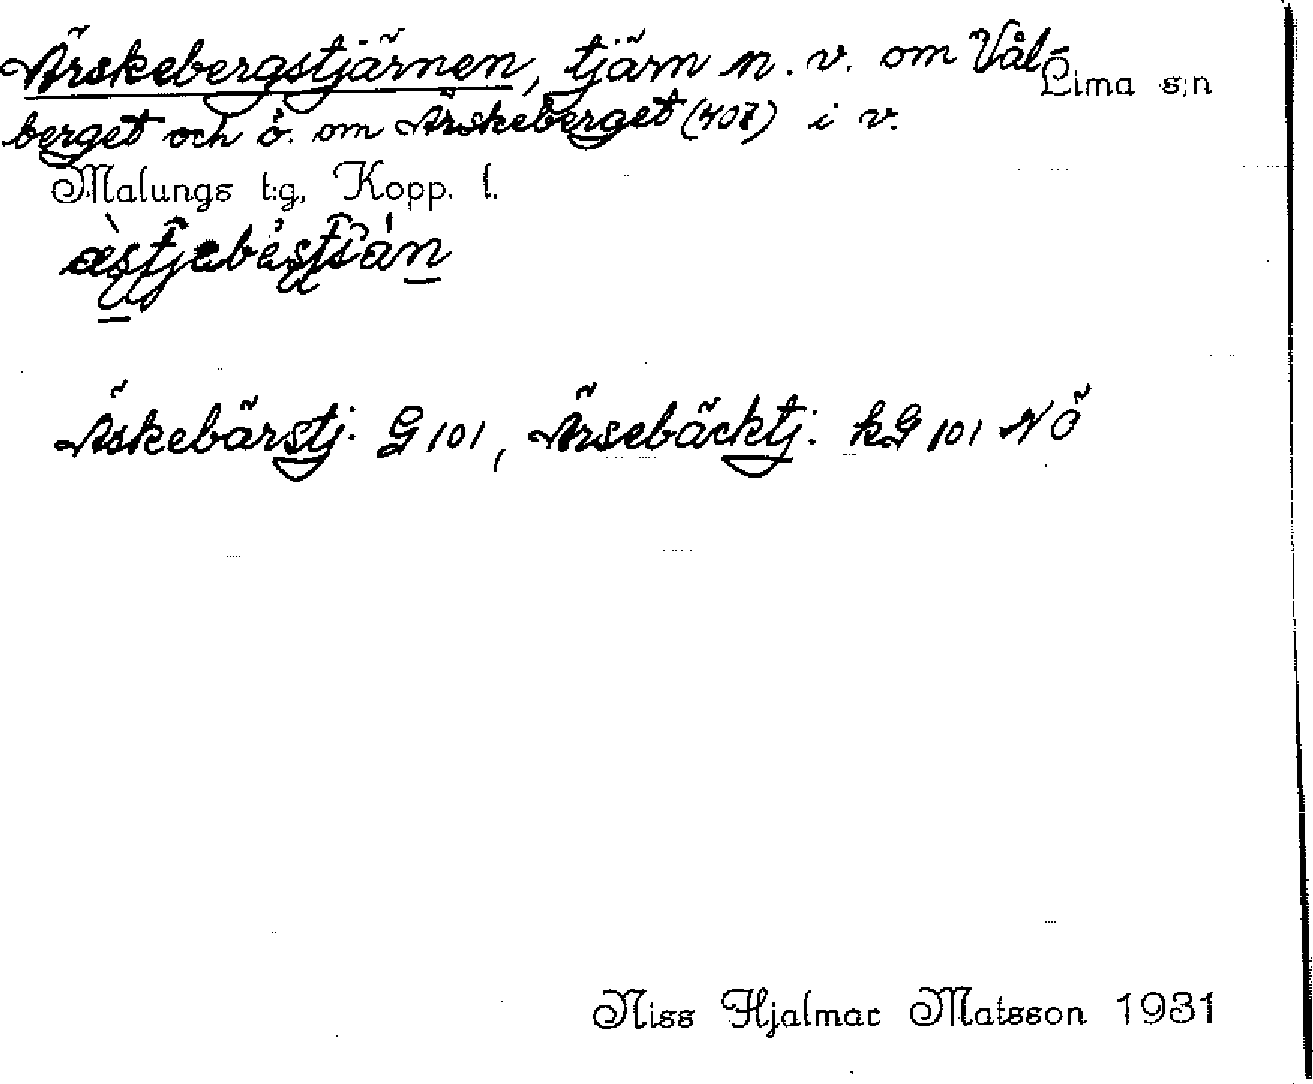 Ärskebergstjärnen, tjärn n. v. om Vål-
Lima s:n
berget och ö. om Ärskeberget (407) i v.
Malungs t:g, Kopp. l.
Äskebärstj: G 101, Ärsebäcktj: kG 101 NÖ
Niss Hjalmar Matsson 1931